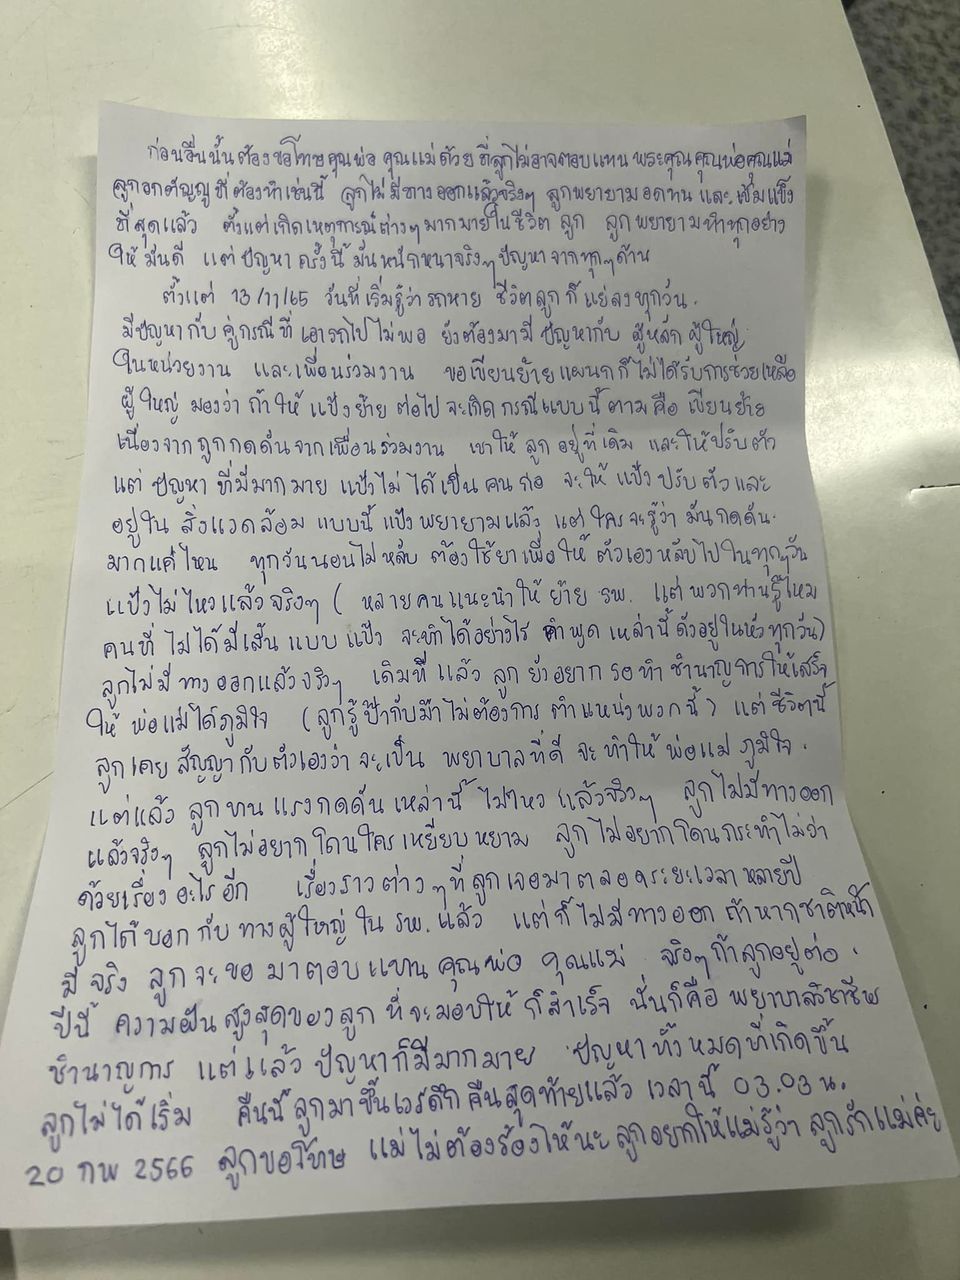 ก่อนอื่นนั้นต้องขอโทษคุณพ่อ คุณแม่ด้วย ที่ลูกไม่อาจตอบแทน พระคุณคุณพ่อคุณแม่
ลูกอกตัญญูที่ต้องทำเช่นนี้ ลูกไม่มีทางออกแล้วจริงๆ ลูกพยายามอดทน และเข้มแข็ง
ที่สุดแล้ว ตั้งแต่เกิดเหตุการณ์ต่างๆมากมายในชีวิต ลูก ลูกพยายามทำทุกอย่าง
ให้มันดี แต่ปัญหาครั้งนี้มันหนักหนาจริงๆปัญหาจากทุกๆด้าน
ตั้งแต่ 13/11/65 วันที่เริ่มรู้ว่ารถหาย ชีวิตลูกก็แย่ลงทุกวัน.
มีปัญหากับคู่กรณีที่เอารถไปไม่พอ ยังต้องมามีปัญหากับ ผู้หลักผู้ใหญ่
ในหน่วยงาน และเพื่อนร่วมงาน ขอเขียนย้ายแผนกก็ไม่ได้รับการช่วยเหลือ
ผู้ใหญ่ มองว่าถ้าให้แป้งย้าย ต่อไปจะเกิดกรณีแบบนี้ตามคือ เขียนย้าย
เนื่องจากถูกกดดันจากเพื่อนร่วมงาน เขาให้ลูกอยู่ที่เดิม และให้ปรับตัว
แต่ปัญหาที่มีมากมาย แป้งไม่ได้เป็นคนก่อ จะให้แป้งปรับตัวและ
อยู่ใน สิ่งแวดล้อม แบบนี้ แป้งพยายามแล้ว แต่ใครจะรู้ว่า มันกดดัน.
มากแค่ไหน ทุกวันนอนไม่หลับ ต้องใช้ยาเพื่อให้ตัวเองหลับไปในทุกๆวัน
แป้งไม่ไหวแล้วจริงๆ ( หลายคนแนะนำให้ย้าย รพ. แต่พวกท่านรู้ไหม
คนที่ไม่ได้มีเส้นแบบแป้ง จะทำได้อย่างไร คำพูดเหล่านี้ดังอยู่ในหัวทุกวัน)
ลูกไม่มีทางออกแล้วจริงๆ เดิมทีแล้ว ลูกยังอยาก รอทำชำนาญการให้เสร็จ
ให้พ่อแม่ได้ภูมิใจ (ลูกรู้ป๊ากับม๊าไม่ต้องการตำแหน่งพวกนี้) แต่ชีวิตนี้
ลูกเคยสัญญากับตัวเองว่าจะเป็น พยาบาลที่ดี จะทำให้พ่อแม่ภูมิใจ.
แต่แล้ว ลูกทนแรงกดดันเหล่านี้ ไม่ไหวแล้วจริงๆ ลูกไม่มีทางออก
แล้วจริงๆ ลูกไม่อยากโดนใครเหยียบหยาม ลูกไม่อยากโดนกระทำไม่ว่า
ด้วยเรื่องอะไรอีก เรื่องราวต่างๆที่ลูกเจอมาตลอดระยะเวลาหลายปี
ลูกได้บอกกับทางผู้ใหญ่ใน รพ.แล้ว แต่ก็ไม่มีทางออก ถ้าหากชาติหน้า
มีจริง ลูกจะขอมาตอบแทนคุณพ่อ คุณแม่ จริงๆถ้าลูกอยู่ต่อ.
ปีนี้ ความฝันสูงสุดของลูก ที่จะมอบให้ ก็สำเร็จ นั่นก็คือ พยาบาลวิชาชีพ
ชำนาญการ แต่แล้วปัญหาก็มีมากมาย ปัญหาทั้งหมดที่เกิดขึ้น
ลูกไม่ได้เริ่ม คืนนี้ลูกมาขึ้นเวรดึกคืนสุดท้ายแล้ว เวลานี้ 03.03 น.
20 กพ 2566 ลูกขอโทษ แม่ไม่ต้องร้องไห้นะ ลูกอยากให้แม่รู้ว่า ลูกรักแม่ค่ะ